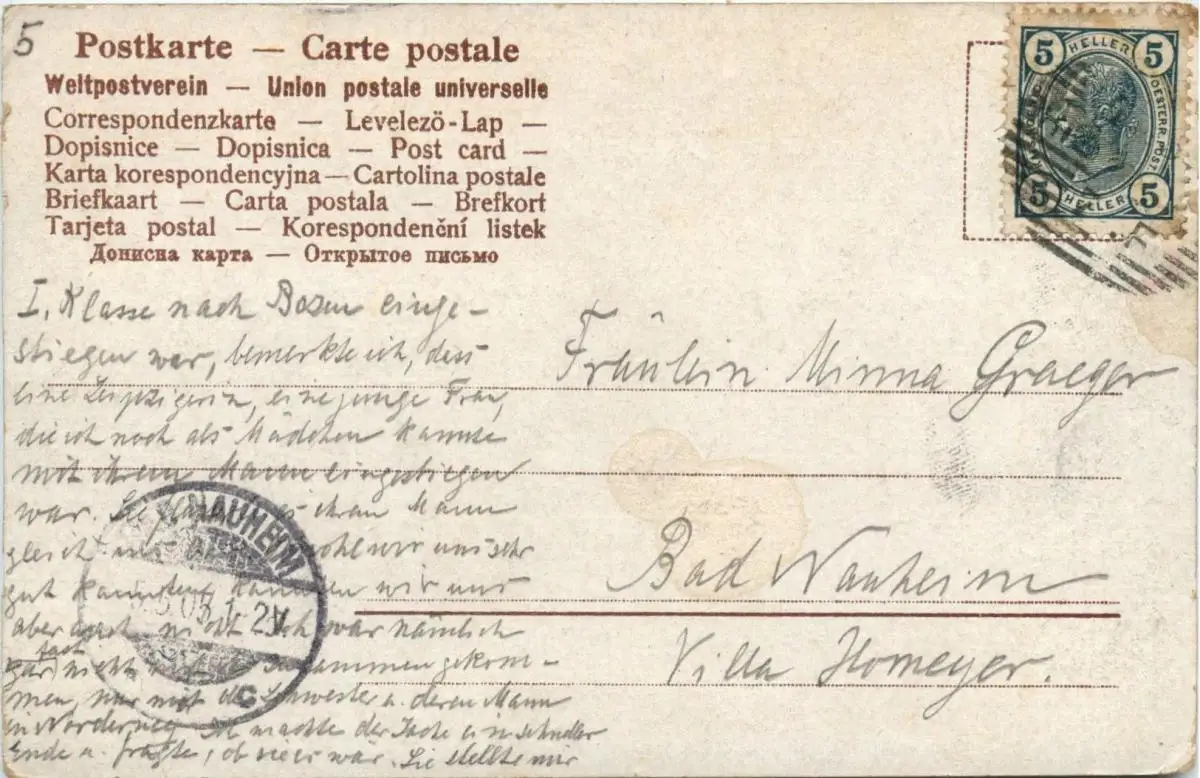 5
Postkarte — Carte postale
Weltpostverein — Union postale universelle
Correspondenzkarte — Levelezö-Lap —
Dopisnice — Dopisnica — Post card —
Karta korespondencyjna — Cartolina postale
Briefkaart — Carta postala — Brefkort
Tarjeta postal — Korespondenční listek
Дописна карта — Открытое письмо
5 HELLER 5
OESTERR. POST
5 HELLER 5
I. Klasse nach Bozen einge-
stiegen war, bemerkte ich, dass
eine Leipzigerin, eine junge Frau,
die ich noch als Mädchen kannte
mit ihrem Mann eingestiegen
war. Sie ihren Mann
gleich wohl wir uns sehr
gut kannten, kannten wir uns
aber auch nicht. Ich war nämlich
fast
gar nicht zusammengekom-
men, nur mit der Schwester u. deren Mann
in Norderney. Ich machte der Sache ein schnelles
Ende u. fragte, ob sie es wär. Sie stellte mir
NAUHEIM
1-2N
C
Fräulein Minna Graeger
Bad Nauheim
Villa Homeyer.